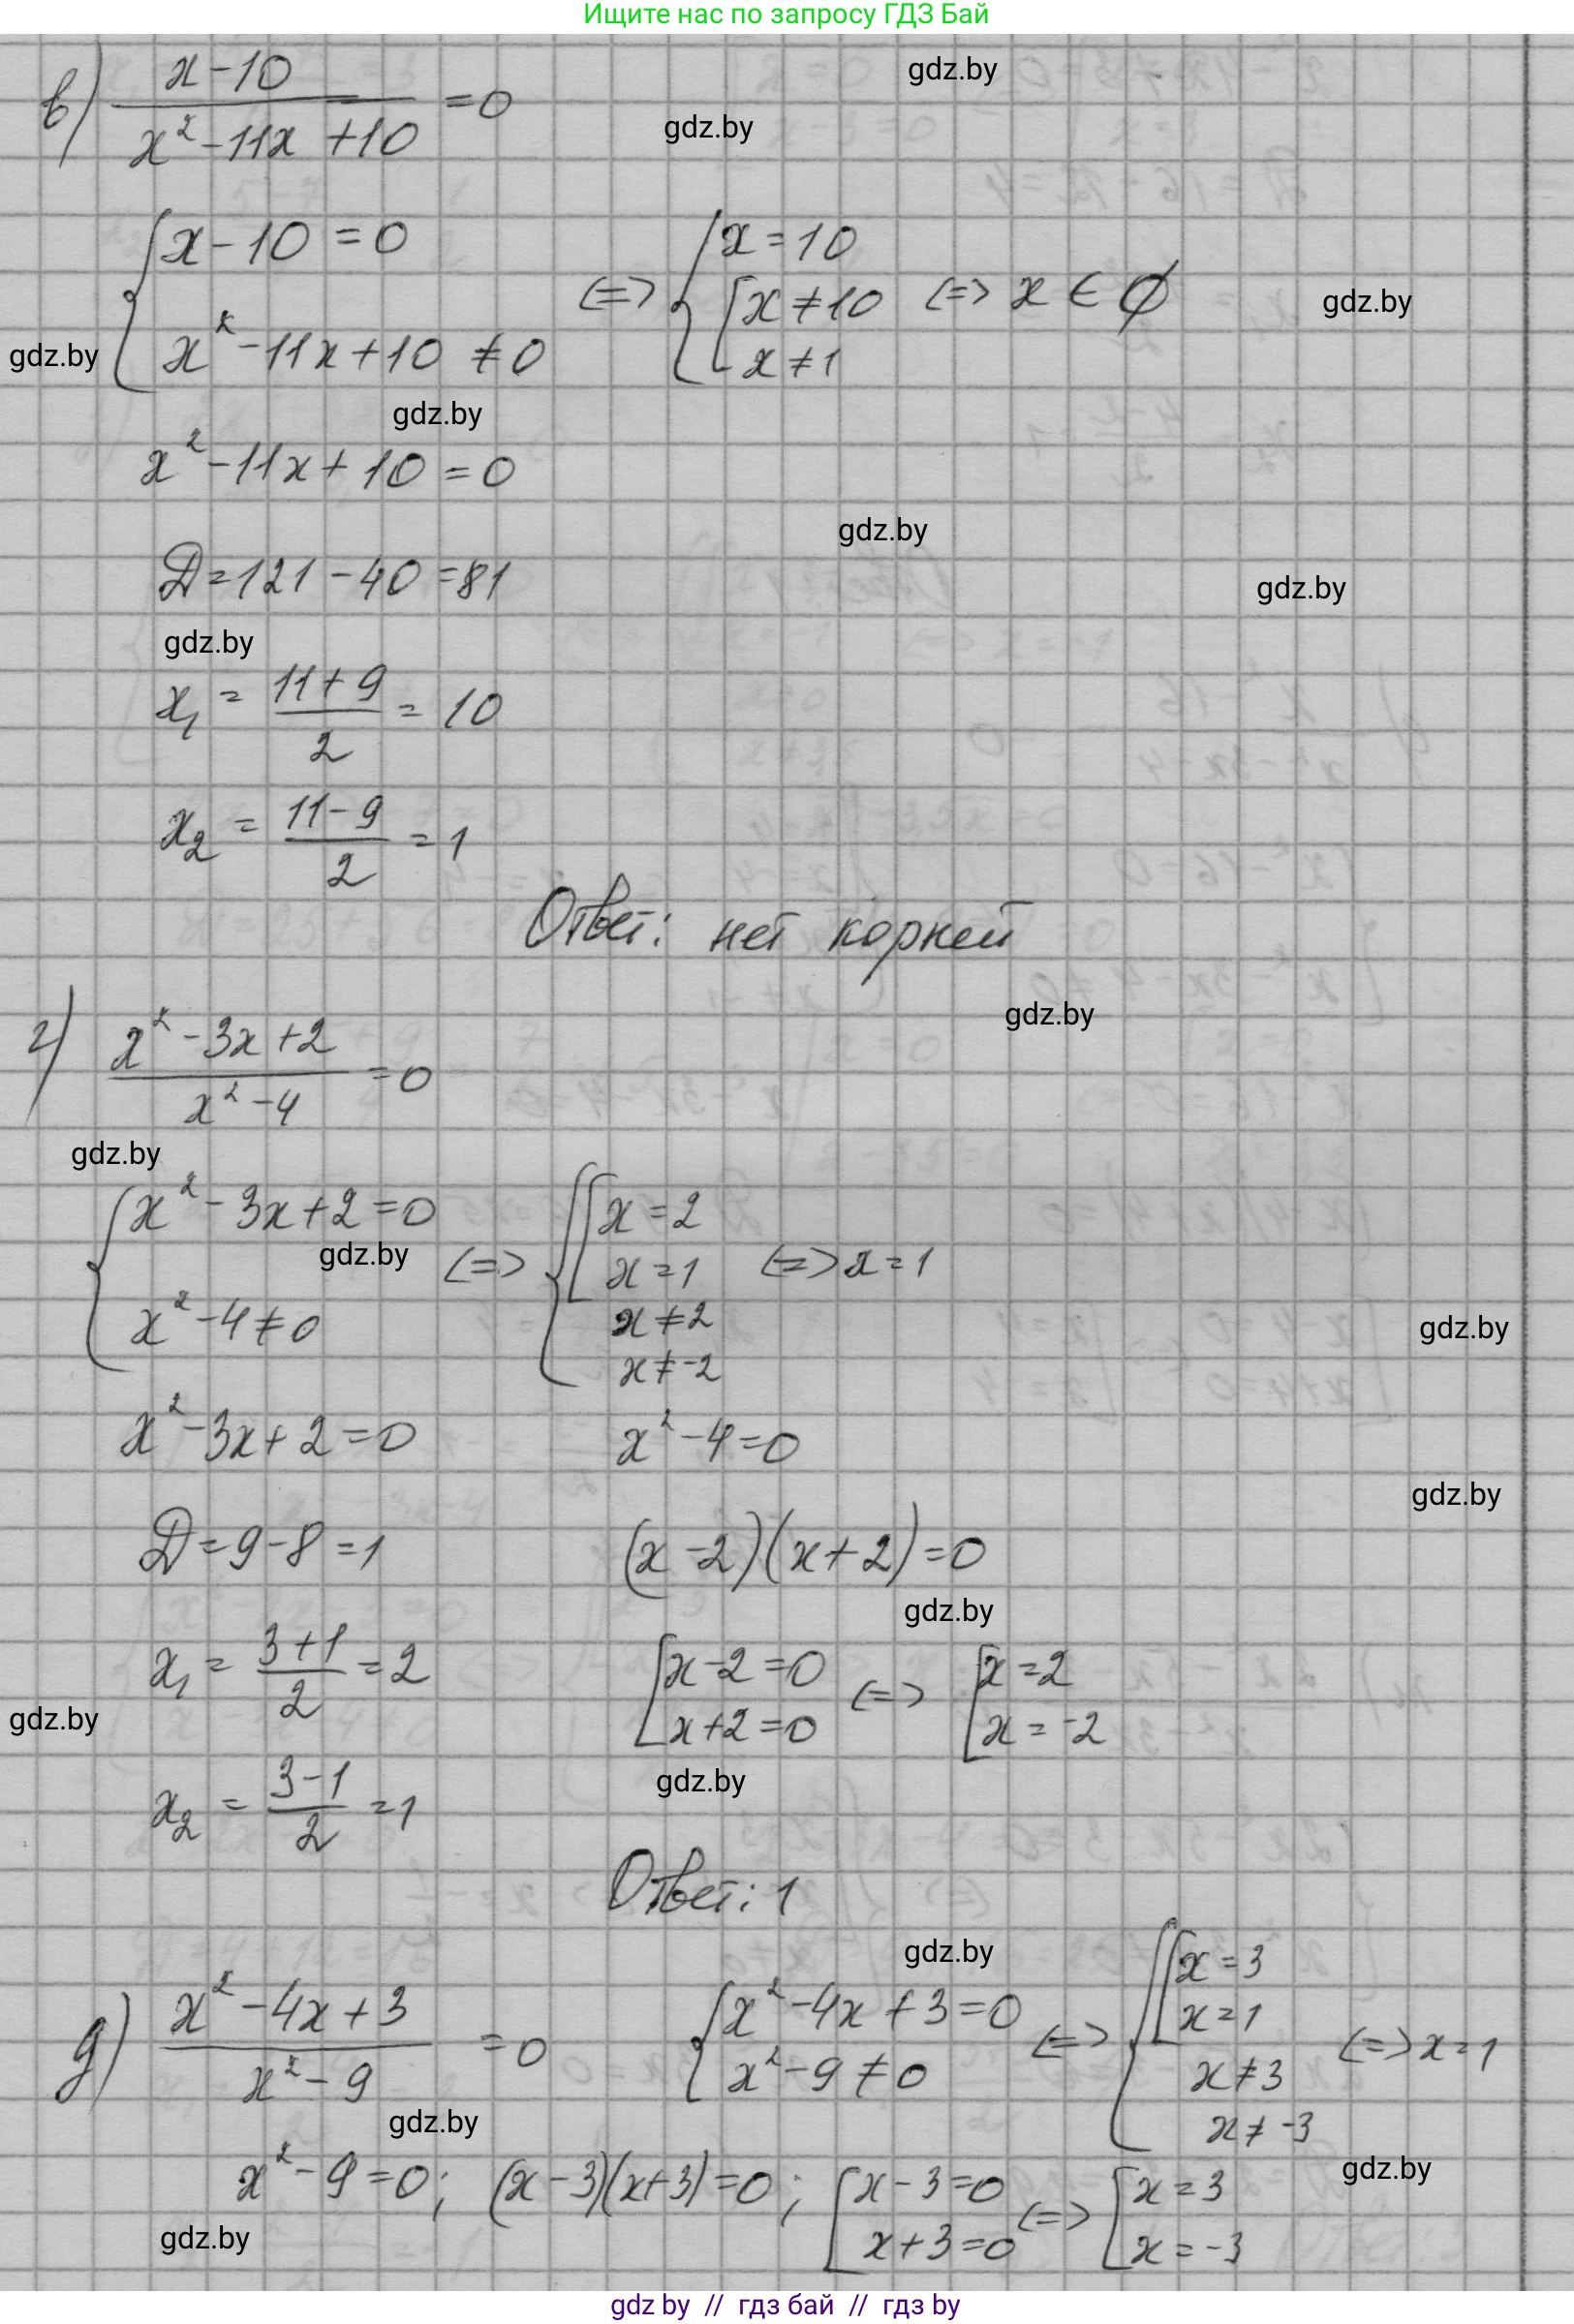 Ищите нас по запросу ГДЗ Бай
в) (x-10)/(x²-11x+10) =0
gdz.by
gdz.by
{ x-10=0
x²-11x+10≠0 <=> { x=10
[ x≠10
x≠1 <=> x∈∅
gdz.by
gdz.by
gdz.by
x²-11x+10=0
gdz.by
D=121-40=81
gdz.by
gdz.by
x₁ = (11+9)/2 = 10
x₂ = (11-9)/2 = 1
Ответ: нет корней
gdz.by
г) (x²-3x+2)/(x²-4) =0
gdz.by
{ x²-3x+2=0
x²-4≠0 <=> { [ x=2
x=1
x≠2
x≠-2 <=> x=1
gdz.by
gdz.by
x²-3x+2=0 x²-4=0
gdz.by
D=9-8=1 (x-2)(x+2)=0
gdz.by
x₁ = (3+1)/2 = 2 [ x-2=0
x+2=0 <=> [ x=2
x=-2
gdz.by
gdz.by
x₂ = (3-1)/2 = 1
Ответ: 1
gdz.by
д) (x²-4x+3)/(x²-9) =0 { x²-4x+3=0
x²-9≠0 <=> { [ x=3
x=1
x≠3
x≠-3 <=> x=1
gdz.by
x²-9=0; (x-3)(x+3)=0; [ x-3=0
x+3=0 <=> [ x=3
x=-3
gdz.by
gdz.by
gdz by // гдз бай // гдз by